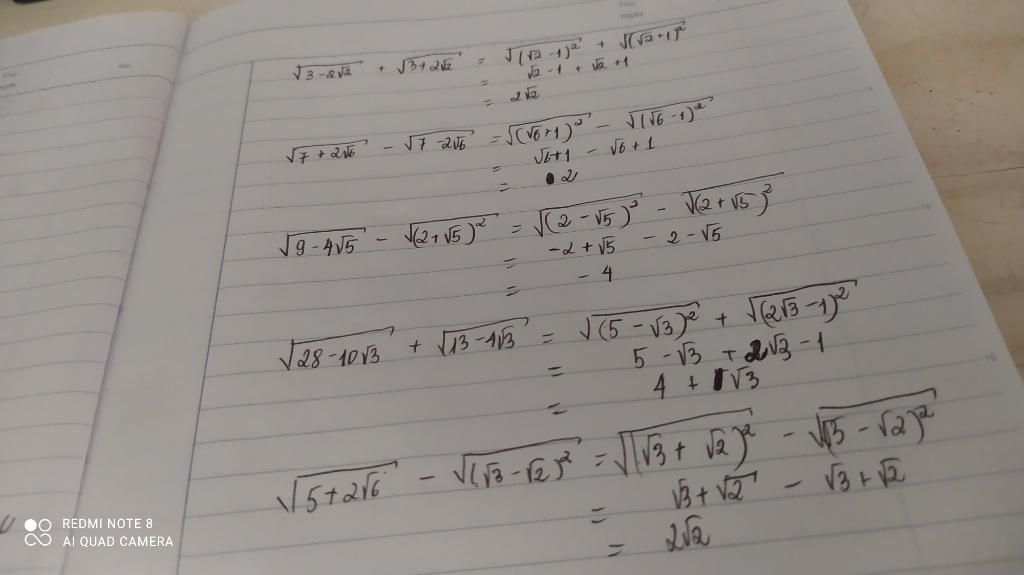 √(3-2√2) + √(3+2√2) = √(√2-1)² + √(√2+1)²
= √2-1 + √2+1
= 2√2
√(7+2√6) - √(7-2√6) = √(√6+1)² - √(√6-1)²
= √6+1 - √6+1
= 2
√(9-4√5) - √(2+√5)² = √(2-√5)² - √(2+√5)²
= -2+√5 - 2-√5
= -4
√(28-10√3) + √(13-4√3) = √(5-√3)² + √(2√3-1)²
= 5-√3 + 2√3-1
= 4 + 1√3
√(5+2√6) - √(√3-√2)² = √(√3+√2)² - √(√3-√2)²
= √3+√2 - √3+√2
= 2√2
REDMI NOTE 8
AI QUAD CAMERA